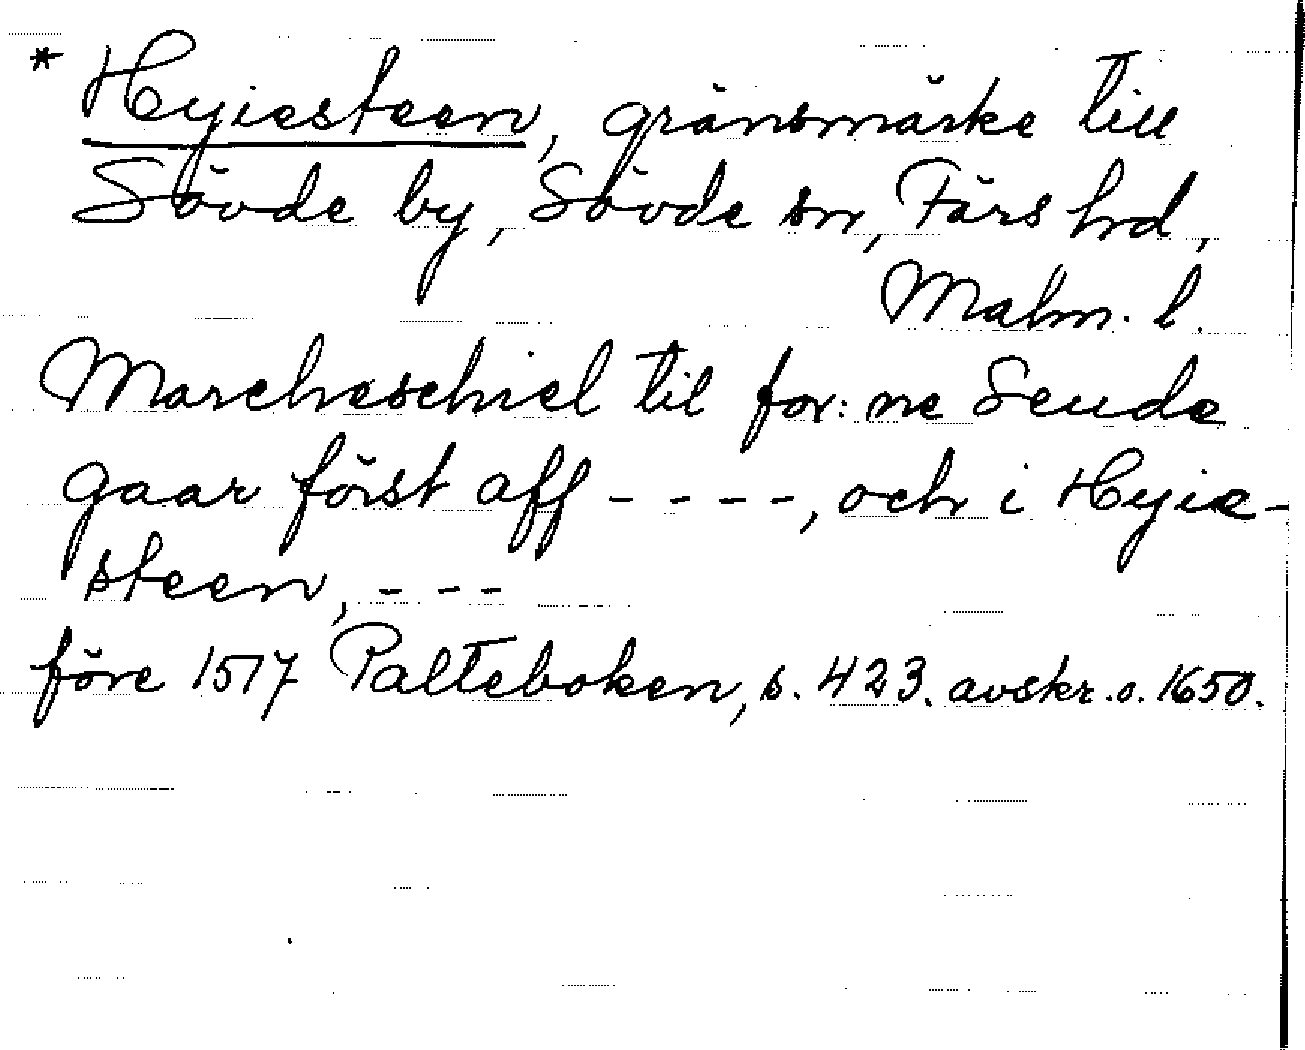 * Hyiesteen, gränsmärke till
Sövde by, Sövde sn, Färs hd,
Malm. l.
Marcheschiel til for: ne Seude
gaar först aff - - - -, och i Hyie-
steen, - - -
före 1517 Palteboken, s. 423. avskr. o. 1650.